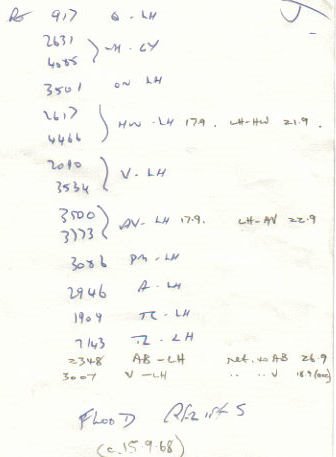 917 Q - LH
2631
4085 } - H - GY
3501 ON LH
2617
4466 } HW - LH 17.9. LH-HW 21.9.
2090
3534 } V - LH
3500
3773 } AV - LH 17.9. LH-AV 22.9
3086 PM - LH
2946 A - LH
1909 TC - LH
7143 - LH
2348 AB - LH ret. to AB 26.9
3007 V - LH " " V 18.9
FLOOD
(c. 15.9.68)